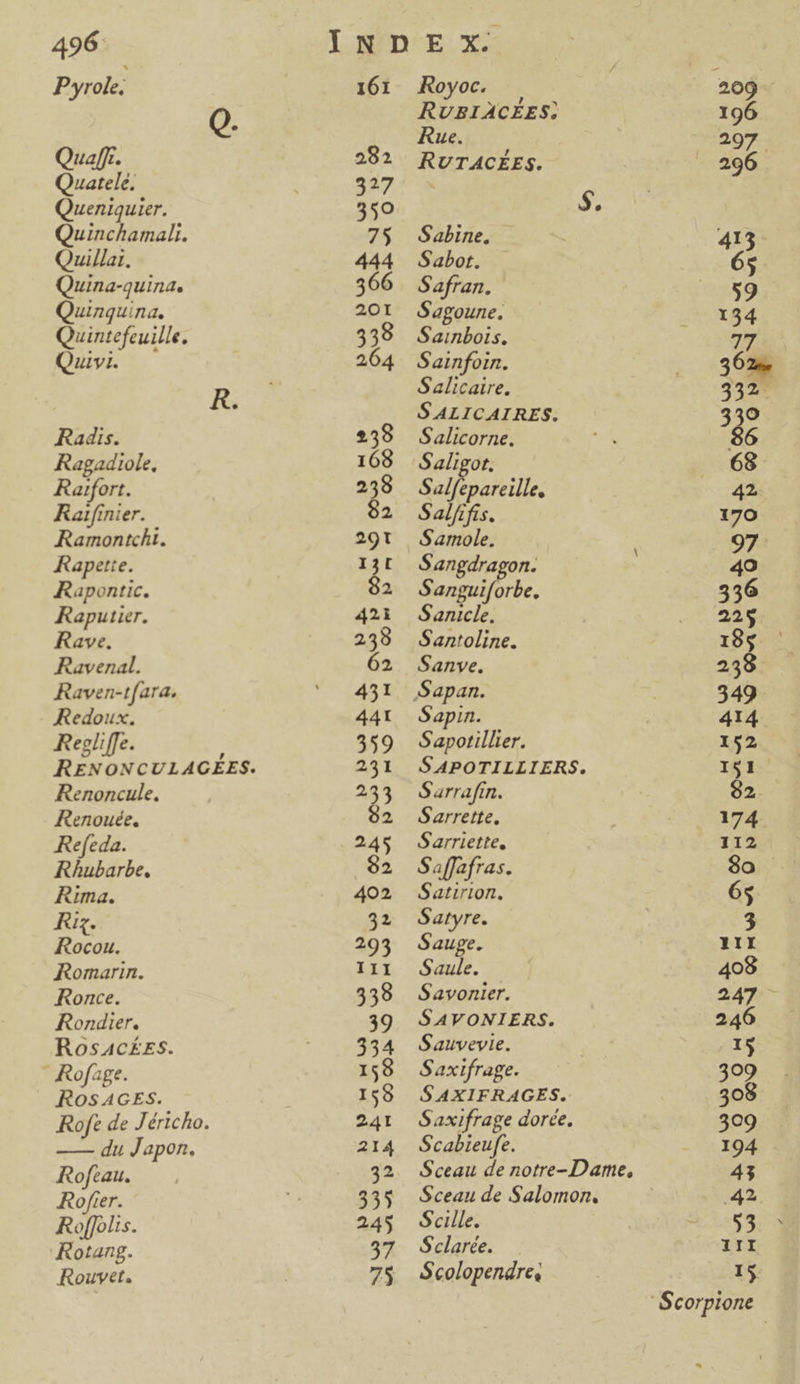 496 INDEX.
Pyrole. 161
Q.
Quaſſi. 282
Quatelé. 327
Queniquier. 350
Quinchamali. 75
Quillai. 444
Quina-quina. 366
Quinquina. 201
Quinteſeuille. 338
Quivi. 264
R.
Radis. 238
Ragadiole. 168
Raifort. 238
Raiſinier. 82
Ramontchi. 291
Rapette. 131
Rapontic. 82
Raputier. 421
Rave. 238
Ravenal. 62
Raven-tſara. 431
Redoux. 441
Regliſſe. 359
RENONCULACÉES. 231
Renoncule. 233
Renouée. 82
Reſeda. 245
Rhubarbe. 82
Rima. 402
Riz. 32
Rocou. 293
Romarin. 111
Ronce. 338
Rondier. 39
ROSACÉES. 334
Roſage. 158
ROSAGES. 158
Roſe de Jéricho. 241
—— du Japon. 214
Roſeau. 32
Roſier. 335
Roſſolis. 245
Rotang. 37
Rouvet. 75
Royoc. 209
RUBIACÉES. 196
Rue. 297
RUTACÉES. 296
S.
Sabine. 413
Sabot. 65
Safran. 59
Sagoune. 134
Sainbois. 77
Sainfoin. 362
Salicaire. 332
SALICAIRES. 330
Salicorne. 86
Saligot. 68
Salſepareille. 42
Salſifis. 170
Samole. 97
Sangdragon. 40
Sanguiſorbe. 336
Sanicle. 225
Santoline. 185
Sanve. 238
Sapan. 349
Sapin. 414
Sapotillier. 152
SAPOTILLIERS. 151
Sarraſin. 82
Sarrette. 174
Sarriette. 112
Saſſafras. 80
Satirion. 65
Satyre. 3
Sauge. 111
Saule. 408
Savonier. 247
SAVONIERS. 246
Sauvevie. 15
Saxifrage. 309
SAXIFRAGES. 308
Saxifrage dorée. 309
Scabieuſe. 194
Sceau de notre-Dame. 43
Sceau de Salomon. 42
Scille. 53
Sclarée. 111
Scolopendre, 15
Scorpione